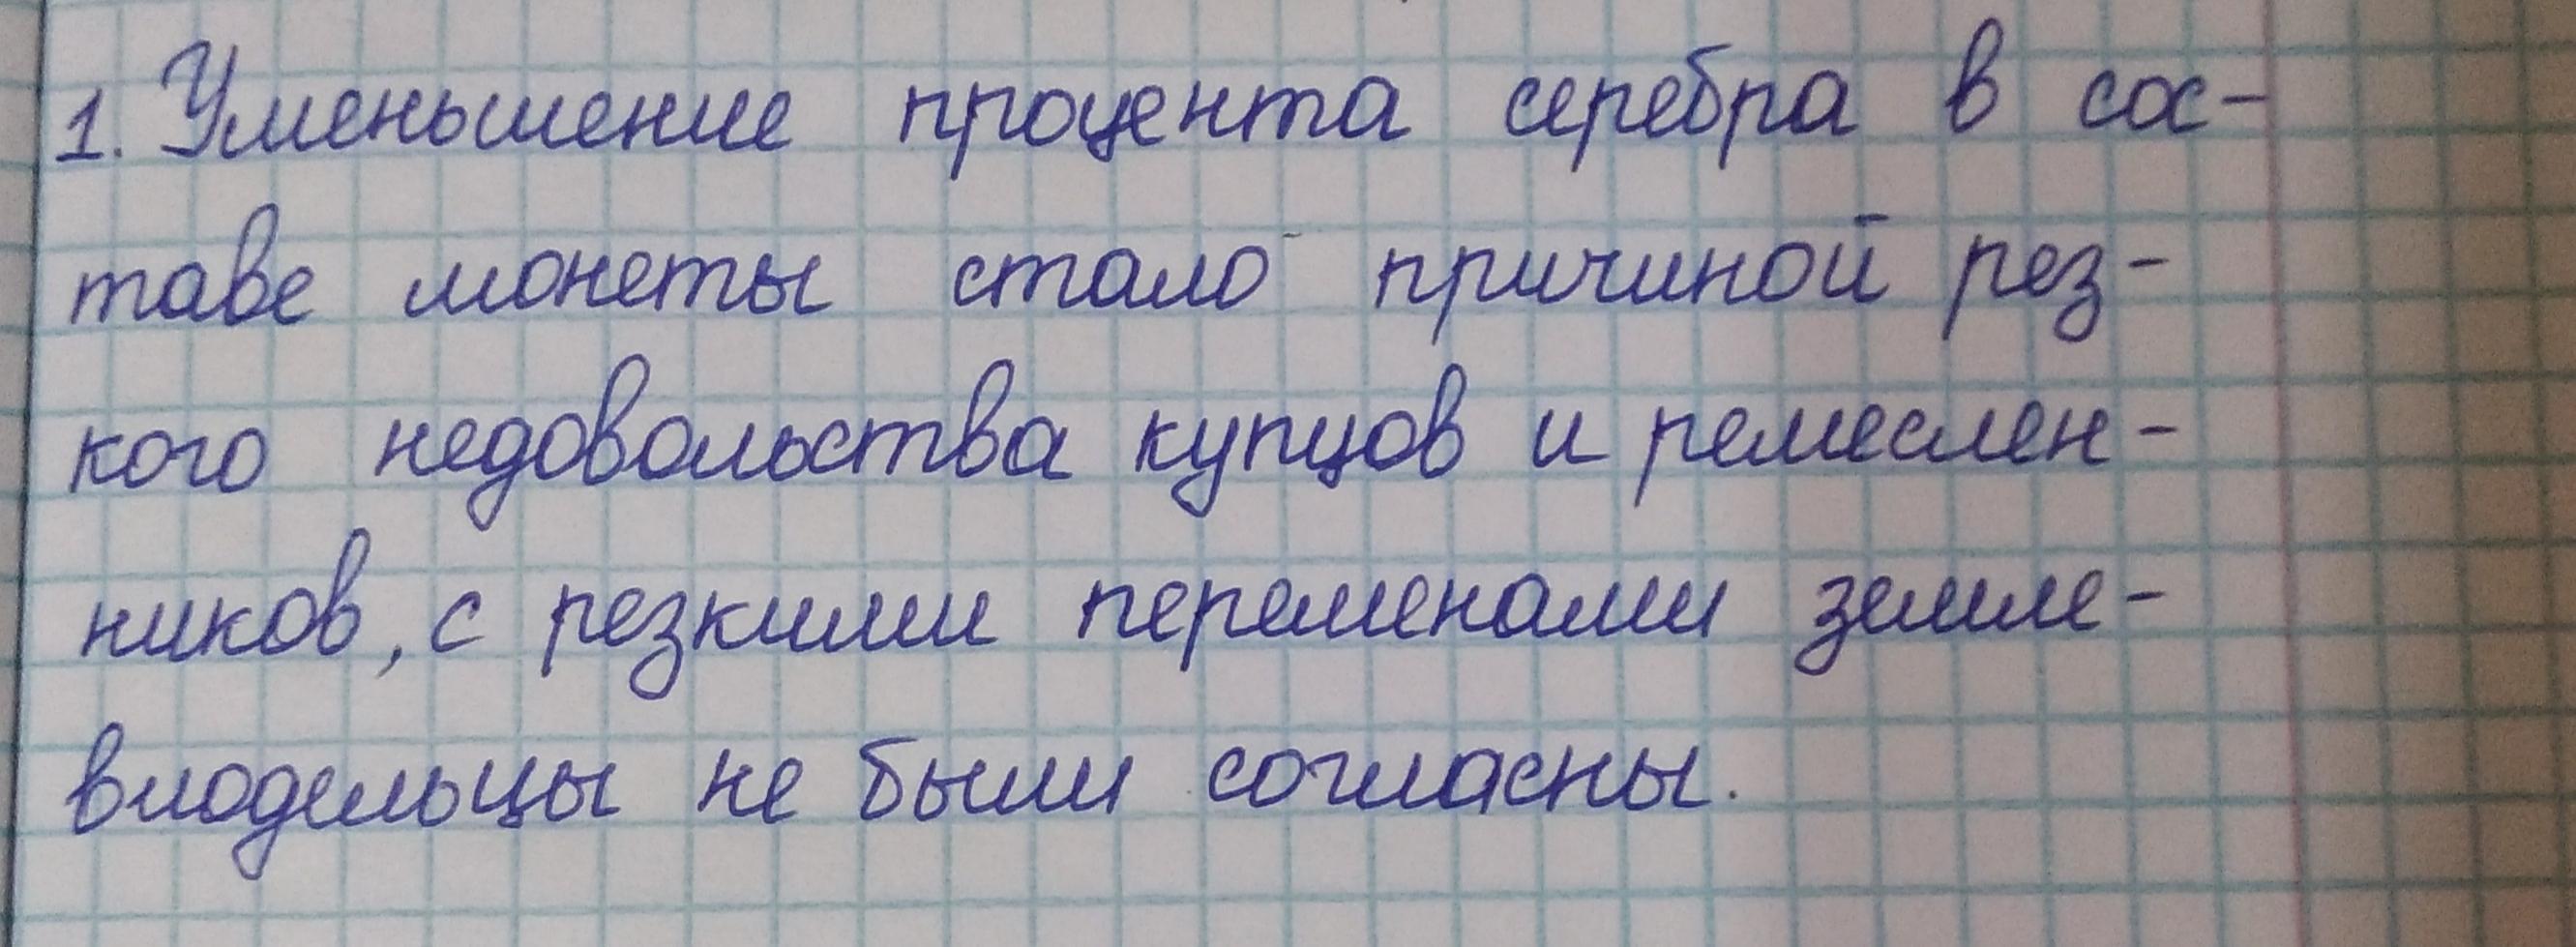 1. Уменьшение процента серебра в сос-
таве монеты стало причиной рез-
кого недовольства купцов и ремеслен-
ников, с резкими переменами земле-
владельцы не были согласны.